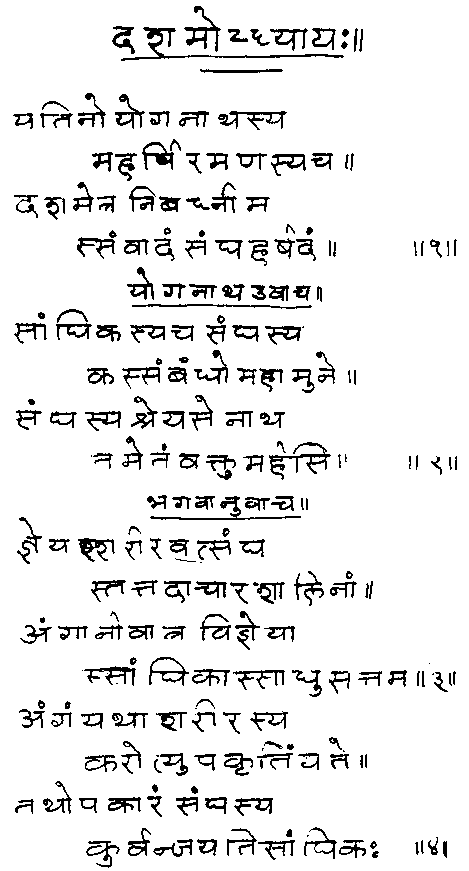 दशमोऽध्यायः॥
यतिनो योगनाथस्य
महर्षिरमणस्यच॥
दशमेत्र निबध्नीम
स्संवादं संघहर्षदं॥ ॥१॥
योगनाथ उवाच॥
सांघिकस्यच संघस्य
कस्संबंधो महामुने॥
संघस्य श्रेयसे नाथ
तमेतं वक्तुमर्हसि॥ ॥२॥
भगवानुवाच॥
ज्ञेयश्शरीरवत्संघ
स्तत्तदाचारशालिनां॥
अंगानीवात्र विज्ञेया
स्सांघिकास्साधुसत्तम॥३॥
अंगं यथा शरीरस्य
करोत्युपकृतिं यते॥
तथोपकारं संघस्य
कुर्वन्जयति सांघिकः ॥४॥